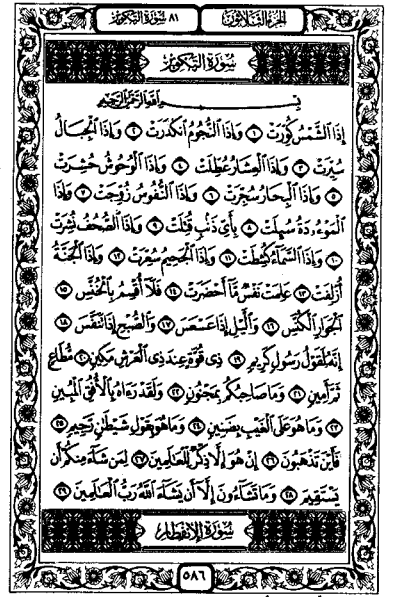 الجزء الثلاثون ٨١ سورة التكوير
سورة التكوير
بسم الله الرحمن الرحيم
إِذَا الشَّمْسُ كُوِّرَتْ ١ وَإِذَا النُّجُومُ انكَدَرَتْ ٢ وَإِذَا الْجِبَالُ
سُيِّرَتْ ٣ وَإِذَا الْعِشَارُ عُطِّلَتْ ٤ وَإِذَا الْوُحُوشُ حُشِرَتْ
٥ وَإِذَا الْبِحَارُ سُجِّرَتْ ٦ وَإِذَا النُّفُوسُ زُوِّجَتْ ٧ وَإِذَا
الْمَوْءُودَةُ سُئِلَتْ ٨ بِأَيِّ ذَنبٍ قُتِلَتْ ٩ وَإِذَا الصُّحُفُ نُشِرَتْ
١٠ وَإِذَا السَّمَاءُ كُشِطَتْ ١١ وَإِذَا الْجَحِيمُ سُعِّرَتْ ١٢ وَإِذَا الْجَنَّةُ
أُزْلِفَتْ ١٣ عَلِمَتْ نَفْسٌ مَّا أَحْضَرَتْ ١٤ فَلَا أُقْسِمُ بِالْخُنَّسِ ١٥
الْجَوَارِ الْكُنَّسِ ١٦ وَاللَّيْلِ إِذَا عَسْعَسَ ١٧ وَالصُّبْحِ إِذَا تَنَفَّسَ ١٨
إِنَّهُ لَقَوْلُ رَسُولٍ كَرِيمٍ ١٩ ذِي قُوَّةٍ عِندَ ذِي الْعَرْشِ مَكِينٍ ٢٠ مُّطَاعٍ
ثَمَّ أَمِينٍ ٢١ وَمَا صَاحِبُكُم بِمَجْنُونٍ ٢٢ وَلَقَدْ رَءَاهُ بِالْأُفُقِ الْمُبِينِ
٢٣ وَمَا هُوَ عَلَى الْغَيْبِ بِضَنِينٍ ٢٤ وَمَا هُوَ بِقَوْلِ شَيْطَٰنٍ رَّجِيمٍ ٢٥
فَأَيْنَ تَذْهَبُونَ ٢٦ إِنْ هُوَ إِلَّا ذِكْرٌ لِّلْعَالَمِينَ ٢٧ لِمَن شَاءَ مِنكُمْ أَن
يَسْتَقِيمَ ٢٨ وَمَا تَشَاءُونَ إِلَّا أَن يَشَاءَ اللَّهُ رَبُّ الْعَالَمِينَ ٢٩
سورة الانفطار
٥٨٦